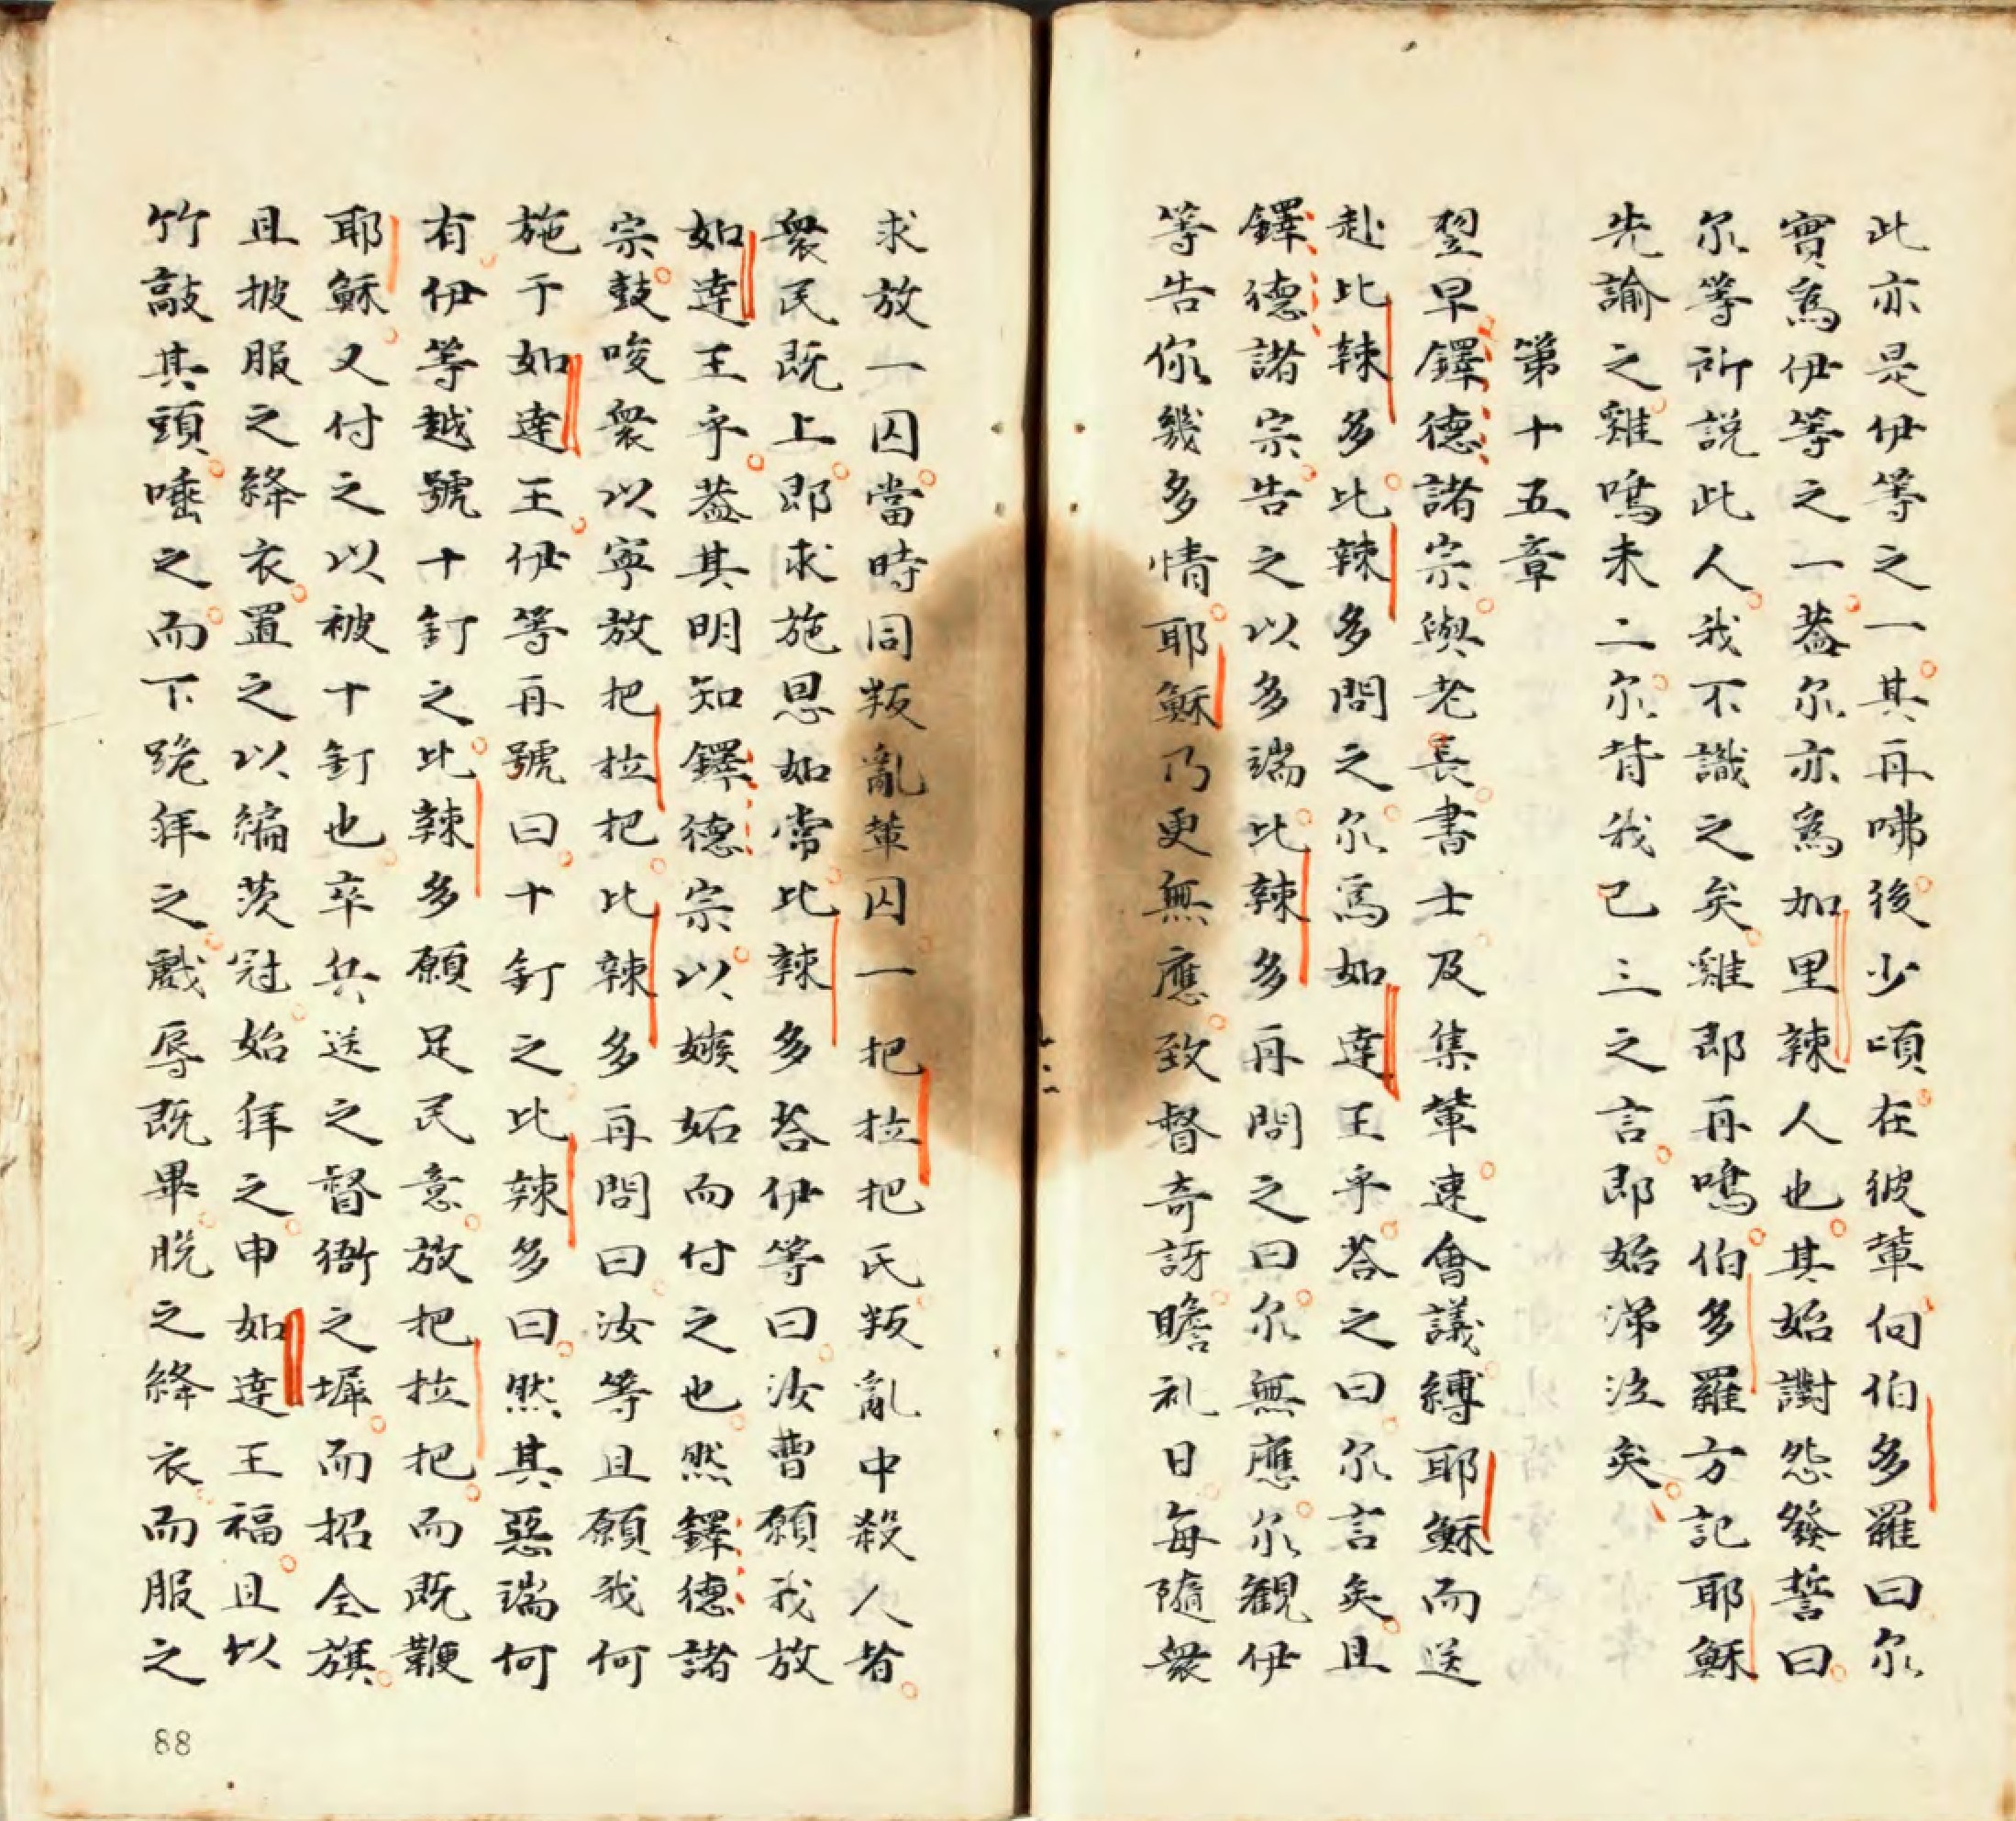 此亦是伊等之一其再咈後少頃在彼軰伺伯多羅曰尔
實爲伊等之一葢尔亦爲加里辣人也其始譵怨發誓曰
尔等祈説此人我不識之矣雞即再鳴伯多羅方記耶穌
先諭之雞鳴未二尔背我已三之言即始涕泣矣
第十五章
翌早鐸德諸宗與老長書士及集軰速會議縛耶穌而送
赴比辣多比辣多問之尔爲如達王乎荅之曰尔言矣且
鐸德諸宗告之以多端比辣多再問之曰尔無應尔觀伊
等告你幾多情耶穌乃更無應致督奇訝瞻礼日每隨衆
求放一囚當時同叛亂軰囚一把拉把氏叛亂中殺人者
衆民既上即求施恩如常比辣多荅伊等曰汝曹願我放
如達王乎葢其明知鐸德宗以嫉妬而付之也然鐸德諸
宗鼓唆衆以寧放把拉把比辣多再問曰汝等且願我何
施于如達王伊等再號曰十釘之比辣多曰然其惡端何
有伊等越號十釘之比辣多願足民意放把拉把而既鞭
耶穌又付之以被十釘也卒兵送之督衙之墀而招全旗
且披服之絳衣置之以編茨冠始拜之申如達王福且以
竹敲其頭唾之而下跪拜之戲辱既畢脱之絳衣而服之
88